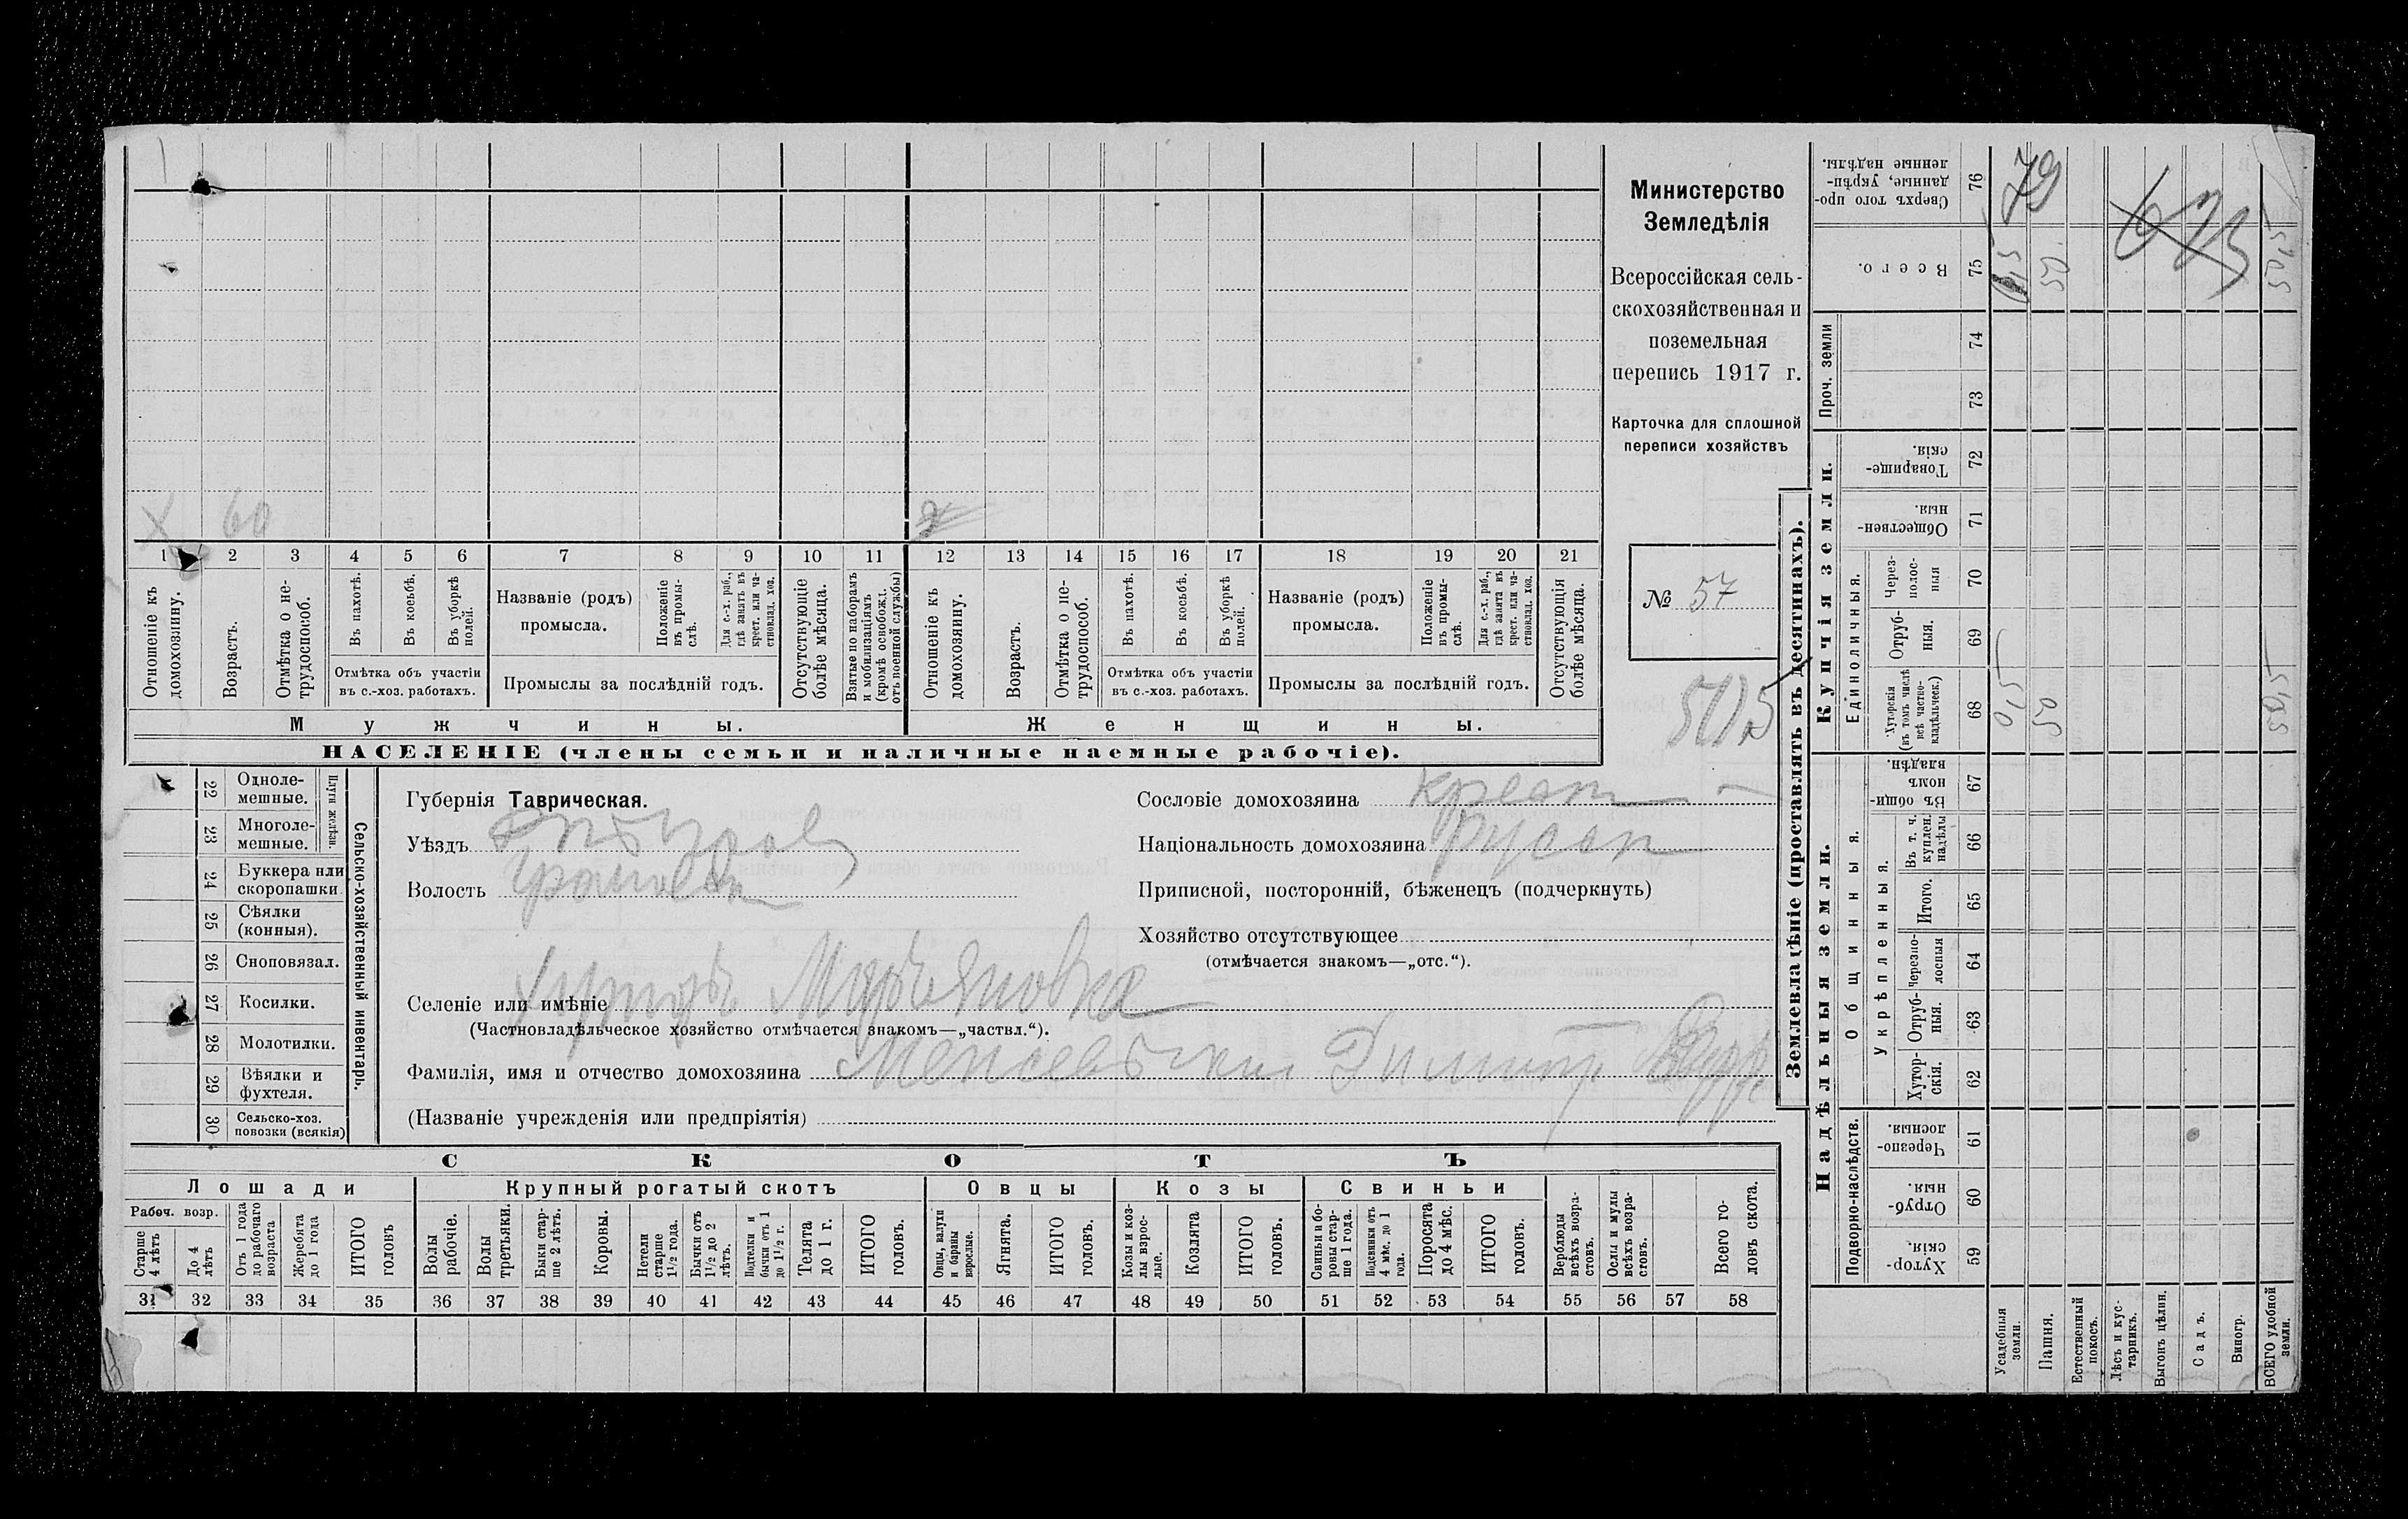 Министерство
Земледѣлія
Всероссійская сель-
скохозяйственная и
поземельная
перепись 1917 г.
Карточка для сплошной
переписи хозяйствъ
№ 57
50,5
Х 60
1 2 3 4 5 6 7 8 9 10 11 12 13 14 15 16 17 18 19 20 21
Отношеніе къ домохозяину.
Возрастъ.
Отмѣтка о не-
трудоспособ.
Въ пахотѣ.
Въ косьбѣ.
Въ уборкѣ
полей.
Отмѣтка объ участіи
въ с.-хоз. работахъ.
Названіе (родъ)
промысла.
Положеніе
въ промы-
слѣ.
Для с.-х. раб.,
гдѣ занятъ въ
крест. или ча-
стновлад. хоз.
Промыслы за послѣдній годъ.
Отсутствующіе
болѣе мѣсяца.
Взятые по наборамъ
и мобилизаціямъ
(кромѣ освобожд.
отъ военной службы)
Отношеніе къ
домохозяину.
Возрастъ.
Отмѣтка о не-
трудоспособ.
Въ пахотѣ.
Въ косьбѣ.
Въ уборкѣ
полей.
Отмѣтка объ участіи
въ с.-хоз. работахъ.
Названіе (родъ)
промысла.
Положеніе
въ промы-
слѣ.
Для с.-х. раб.,
гдѣ занята въ
крест. или ча-
стновлад. хоз.
Промыслы за послѣдній годъ.
Отсутствующія
болѣе мѣсяца.
Мужчины.
Женщины.
НАСЕЛЕНІЕ (члены семьи и наличные наемные рабочіе).
22 Одноле-
мешные.
23 Многоле-
мешные.
Плуги желѣзн.
24 Буккера или
скоропашки
25 Сѣялки
(конныя).
26 Сноповязал.
27 Косилки.
28 Молотилки.
29 Вѣялки и
фухтеля.
30 Сельско-хоз.
повозки (всякія)
Сельско-хозяйственный инвентарь.
Губернія Таврическая.
Уѣздъ
Волость
Селеніе или имѣніе Хуторъ Марьяновка
(Частновладѣльческое хозяйство отмѣчается знакомъ—„частвл.“).
Фамилія, имя и отчество домохозяина
(Названіе учрежденія или предпріятія)
Сословіе домохозяина крест
Національность домохозяина русск
Приписной, посторонній, бѣженецъ (подчеркнуть)
Хозяйство отсутствующее
(отмѣчается знакомъ—„отс.“).
СКОТЪ
Лошади
Крупный рогатый скотъ
Овцы
Козы
Свиньи
Рабоч. возр.
Старше
4 лѣтъ
До 4
лѣтъ
Отъ 1 года
до рабочаго
возраста
Жеребята
до 1 года
ИТОГО
головъ
Волы
рабочіе.
Волы
третьяки.
Быки стар-
ше 2 лѣтъ.
Коровы.
Нетели
старше
1½ года.
Бычки отъ
1½ до 2
лѣтъ.
Подтелки и
бычки отъ 1
до 1½ г.
Телята
до 1 г.
ИТОГО
головъ.
Овцы, валухи
и бараны
взрослые.
Ягнята.
ИТОГО
головъ.
Козы и коз-
лы взрос-
лые.
Козлята
ИТОГО
головъ.
Свиньи и бо-
ровы стар-
ше 1 года.
Подсвинки отъ
4 мѣс. до 1
года.
Поросята
до 4 мѣс.
ИТОГО
головъ.
Верблюды
всѣхъ возра-
стовъ.
Ослы и мулы
всѣхъ возра-
стовъ.
Всего го-
ловъ скота.
31 32 33 34 35 36 37 38 39 40 41 42 43 44 45 46 47 48 49 50 51 52 53 54 55 56 57 58
Землевладѣніе (проставлять въ десятинахъ).
Надѣльныя земли.
Купчія земли.
Подворно-наслѣдств.
Общинныя.
Укрѣпленныя.
Единоличныя.
Проч. земли
Сверхъ того про-
данные, укрѣп-
ленные надѣлы.
76
79
Всего.
75
0,5
50
50,5
74
73
Товарище-
скія.
72
Обществен-
ныя.
71
Через-
полос-
ныя
70
Отруб-
ныя.
69
Хуторскія
(въ томъ числѣ
всѣ частно-
владѣльческ.)
68
0,5
50
50,5
Въ общи-
номъ
владѣн.
67
Въ т. ч.
куплен.
надѣлы
66
Итого.
65
Черезпо-
лосныя
64
Отруб-
ныя.
63
Хутор-
скія.
62
Черезпо-
лосныя.
61
Отруб-
ныя.
60
Хутор-
скія.
59
Усадебныя
земли.
Пашня.
Естественный
покосъ.
Лѣсъ и кус-
тарникъ.
Выгонъ цѣлин.
Садъ.
Виногр.
ВСЕГО удобной
земли.